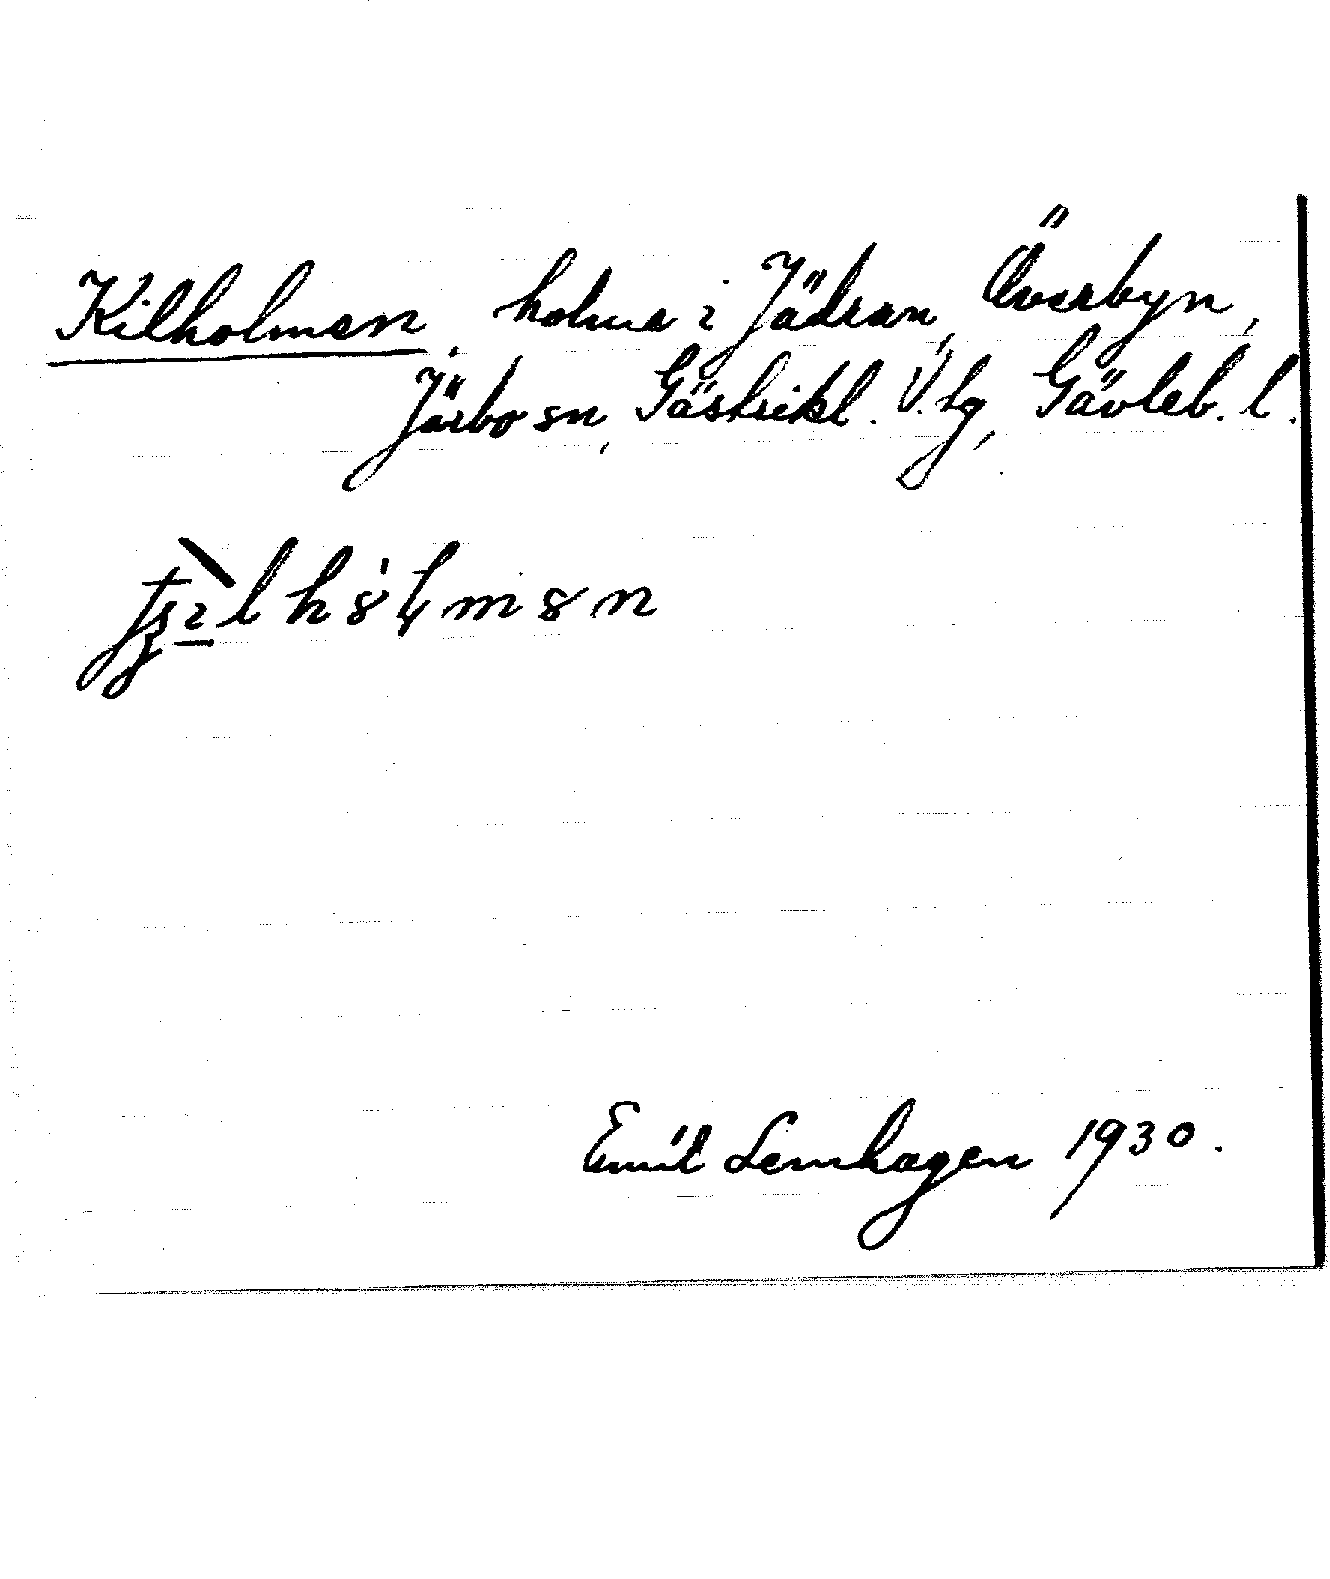 Kilholmen, holme i Jädran, Överbyn,
Järbo sn, Gästrikl. V. tg, Gävleb. l.
Emil Lemhagen 1930.